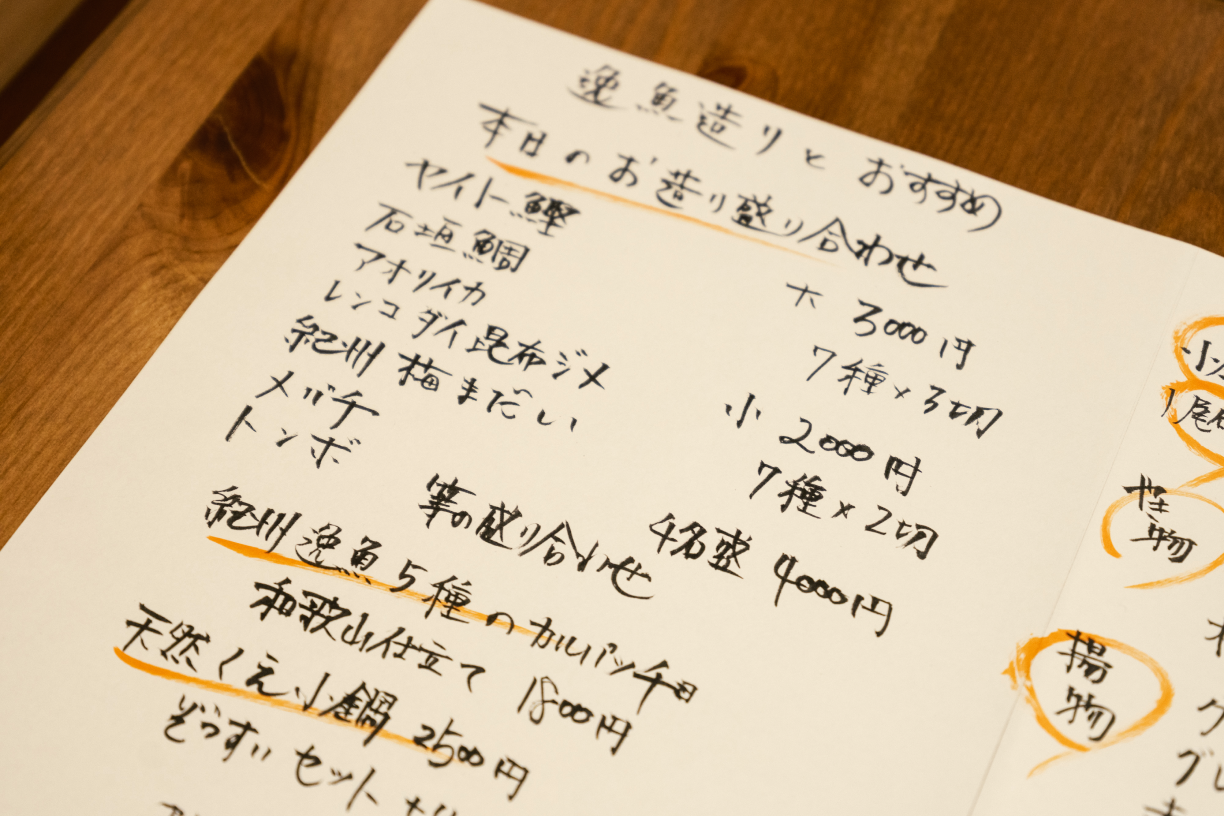 逸魚造りとおすすめ
本日のお造り盛り合わせ
ヤイト鰹
石垣鯛
アオリイカ
レンコダイ昆布ジメ
紀州梅まだい
メバチ
トンボ
大 3000円
7種×3切
小 2000円
7種×2切
等の盛り合わせ 4名盛 4000円
紀州逸魚5種のカルパッチョ
和歌山仕立て 1800円
天然くえ小鍋 2500円
ぞうすいセット
物
揚物